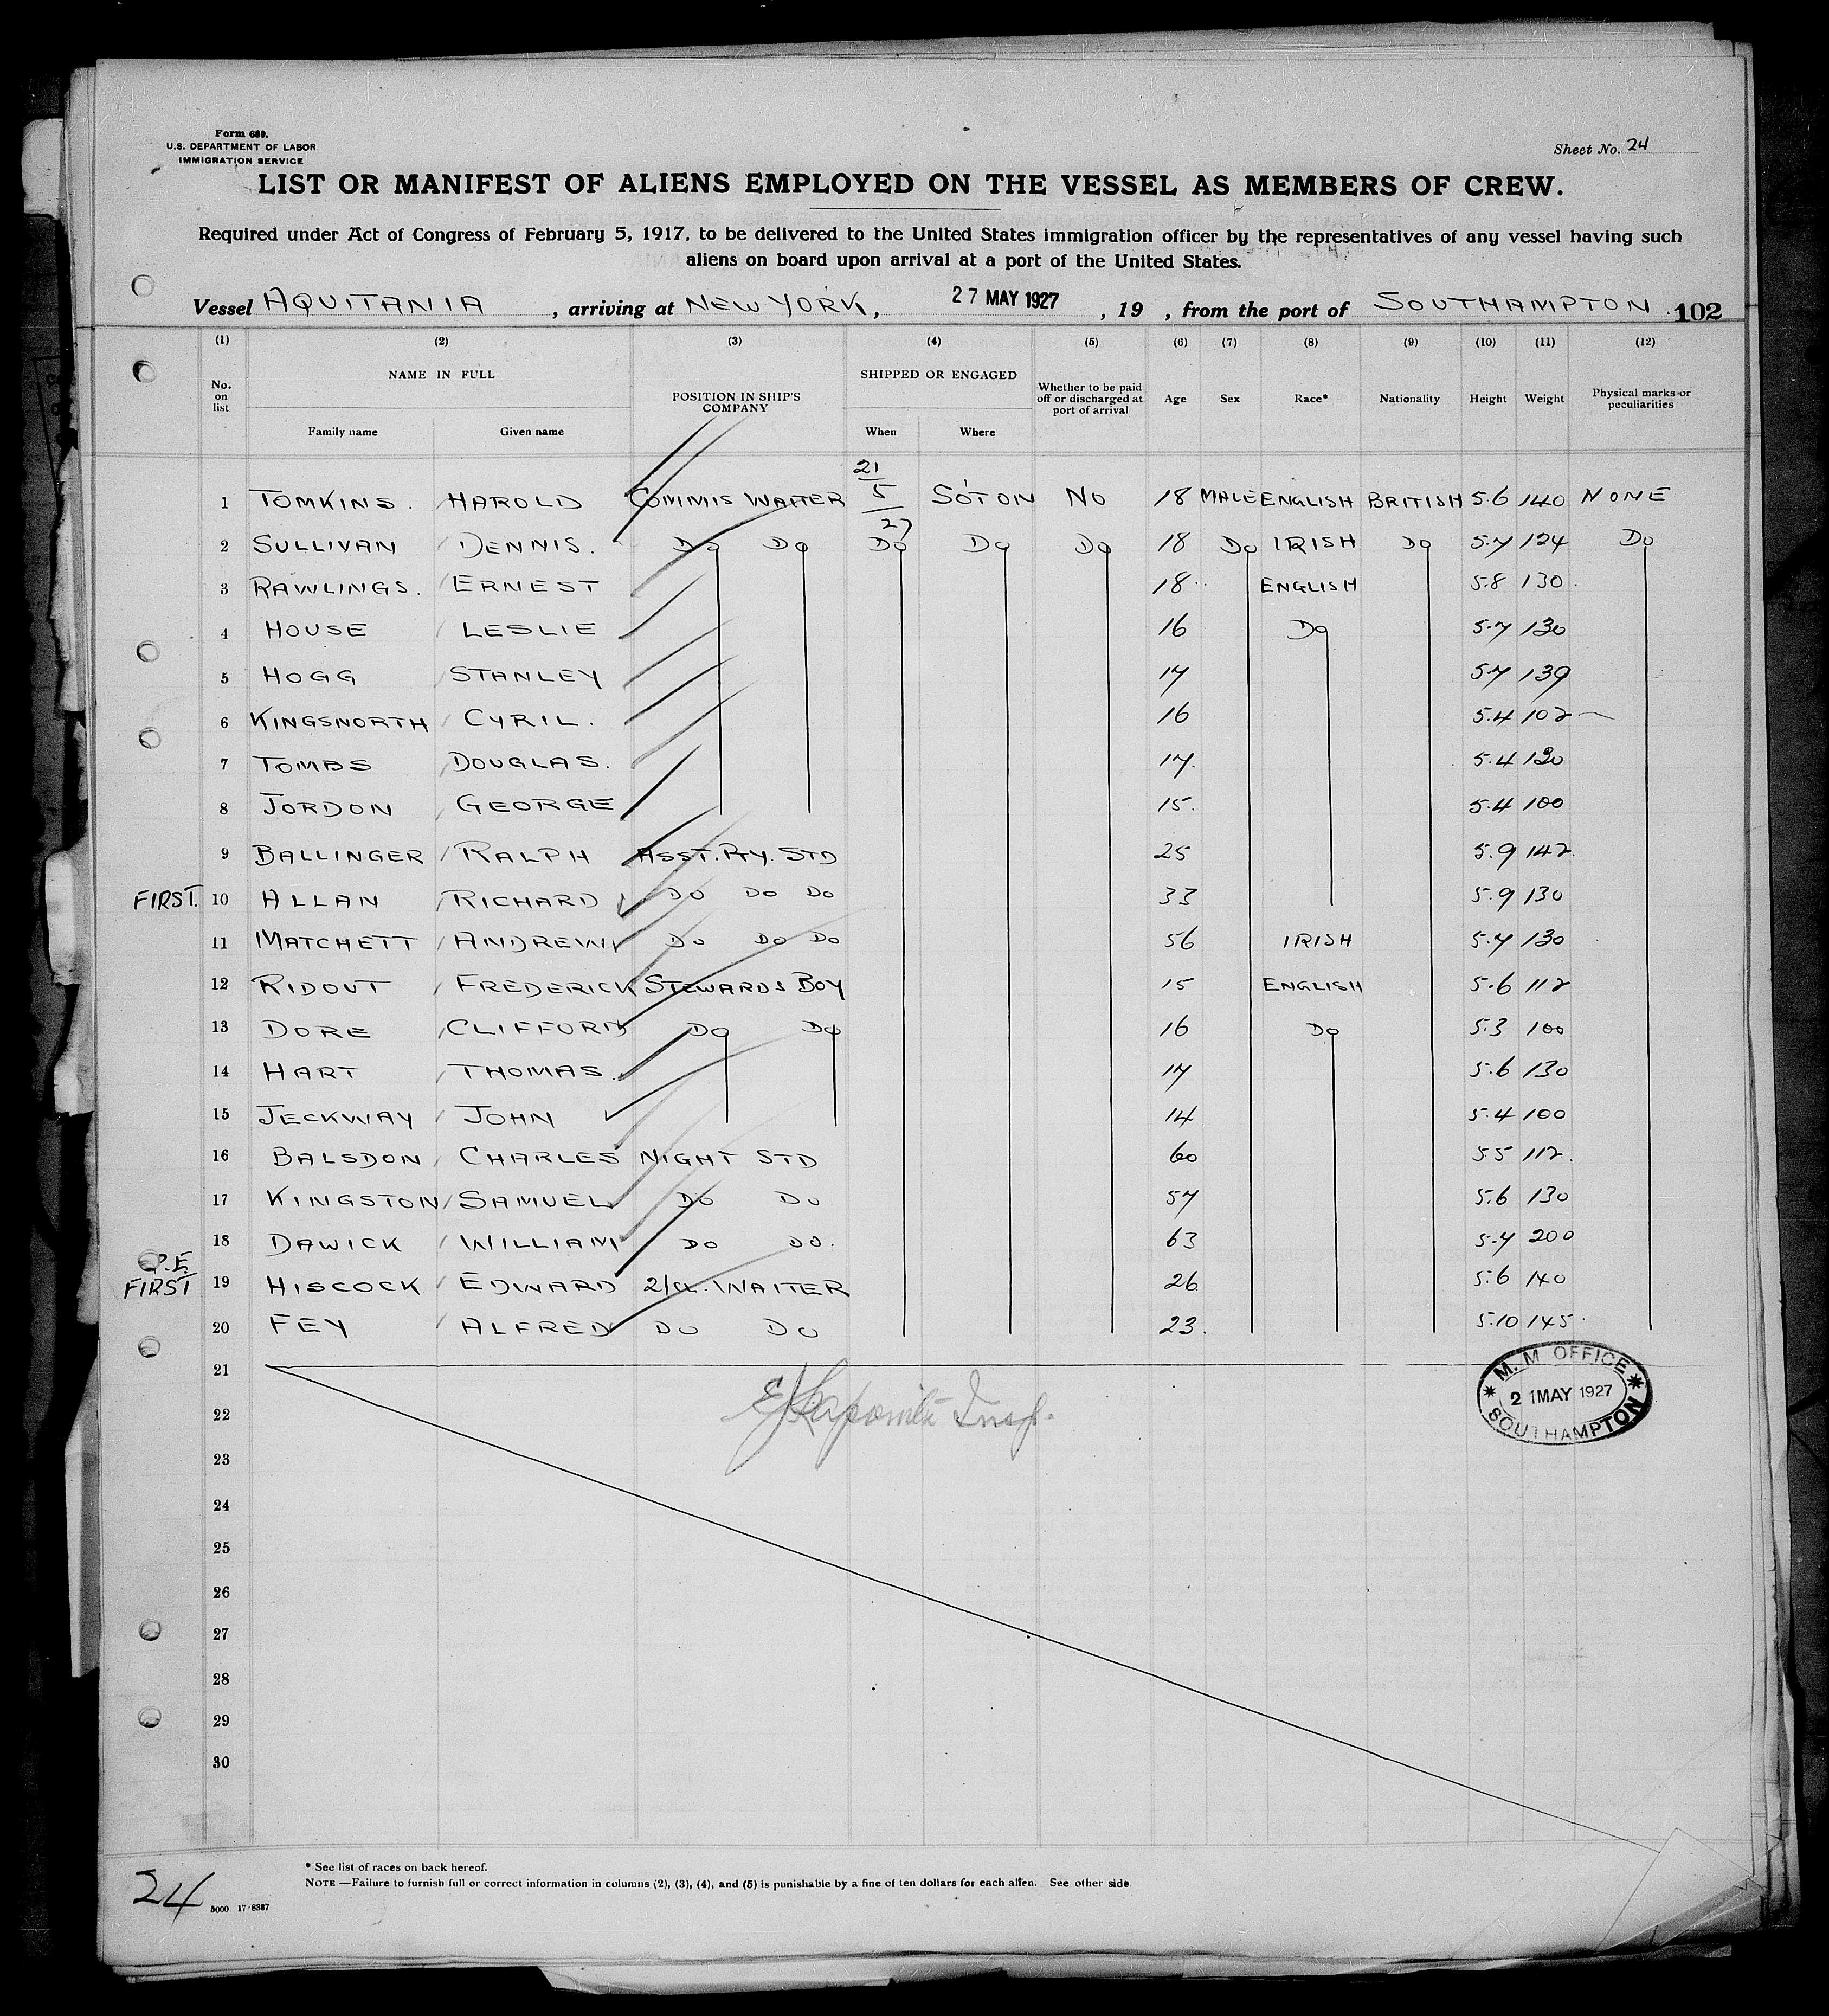 Form 689.
U.S. DEPARTMENT OF LABOR
IMMIGRATION SERVICE
Sheet No. 24
LIST OR MANIFEST OF ALIENS EMPLOYED ON THE VESSEL AS MEMBERS OF CREW.
Required under Act of Congress of February 5, 1917, to be delivered to the United States immigration officer by the representatives of any vessel having such
aliens on board upon arrival at a port of the United States.
Vessel AQUITANIA, arriving at NEW YORK, 27 MAY 1927, 19 , from the port of SOUTHAMPTON 102
(1) (2) (3) (4) (5) (6) (7) (8) (9) (10) (11) (12)
No. on list NAME IN FULL POSITION IN SHIP'S COMPANY SHIPPED OR ENGAGED Whether to be paid off or discharged at port of arrival Age Sex Race* Nationality Height Weight Physical marks or peculiarities
Family name Given name When Where
1 TOMKINS. HAROLD COMMIS WAITER 21/5/27 SO'TON NO 18 MALE ENGLISH BRITISH 5.6 140 NONE
2 SULLIVAN DENNIS. Do Do Do Do Do 18 Do IRISH Do 5.7 124 Do
3 RAWLINGS. ERNEST 18 ENGLISH 5.8 130
4 HOUSE LESLIE 16 Do 5.7 130
5 HOGG STANLEY 17 5.7 139
6 KINGSNORTH CYRIL. 16 5.4 102
7 TOMBS DOUGLAS. 17. 5.4 130
8 JORDON GEORGE 15. 5.4 100
9 BALLINGER RALPH ASST. PTY. STD 25 5.9 142.
FIRST. 10 ALLAN RICHARD Do Do Do 33 5.9 130
11 MATCHETT ANDREW Do Do Do 56 IRISH 5.7 130
12 RIDOUT FREDERICK STEWARDS BOY 15 ENGLISH 5.6 112
13 DORE CLIFFORD Do Do 16 Do 5.3 100
14 HART THOMAS. 17 5.6 130
15 JECKWAY JOHN 14 5.4 100
16 BALSDON CHARLES NIGHT STD 60 5.5 112.
17 KINGSTON SAMUEL Do Do 57 5.6 130
18 DAWICK WILLIAM Do Do. 63 5.7 200
P.E.
FIRST 19 HISCOCK EDWARD 2/Cl. WAITER 26 5.6 140
20 FEY ALFRED Do Do 23. 5.10 145.
21
22
23
24
25
26
27
28
29
30
M. M. OFFICE
21 MAY 1927
SOUTHAMPTON
* See list of races on back hereof.
NOTE —Failure to furnish full or correct information in columns (2), (3), (4), and (5) is punishable by a fine of ten dollars for each alien. See other side
24
5000 17-8387